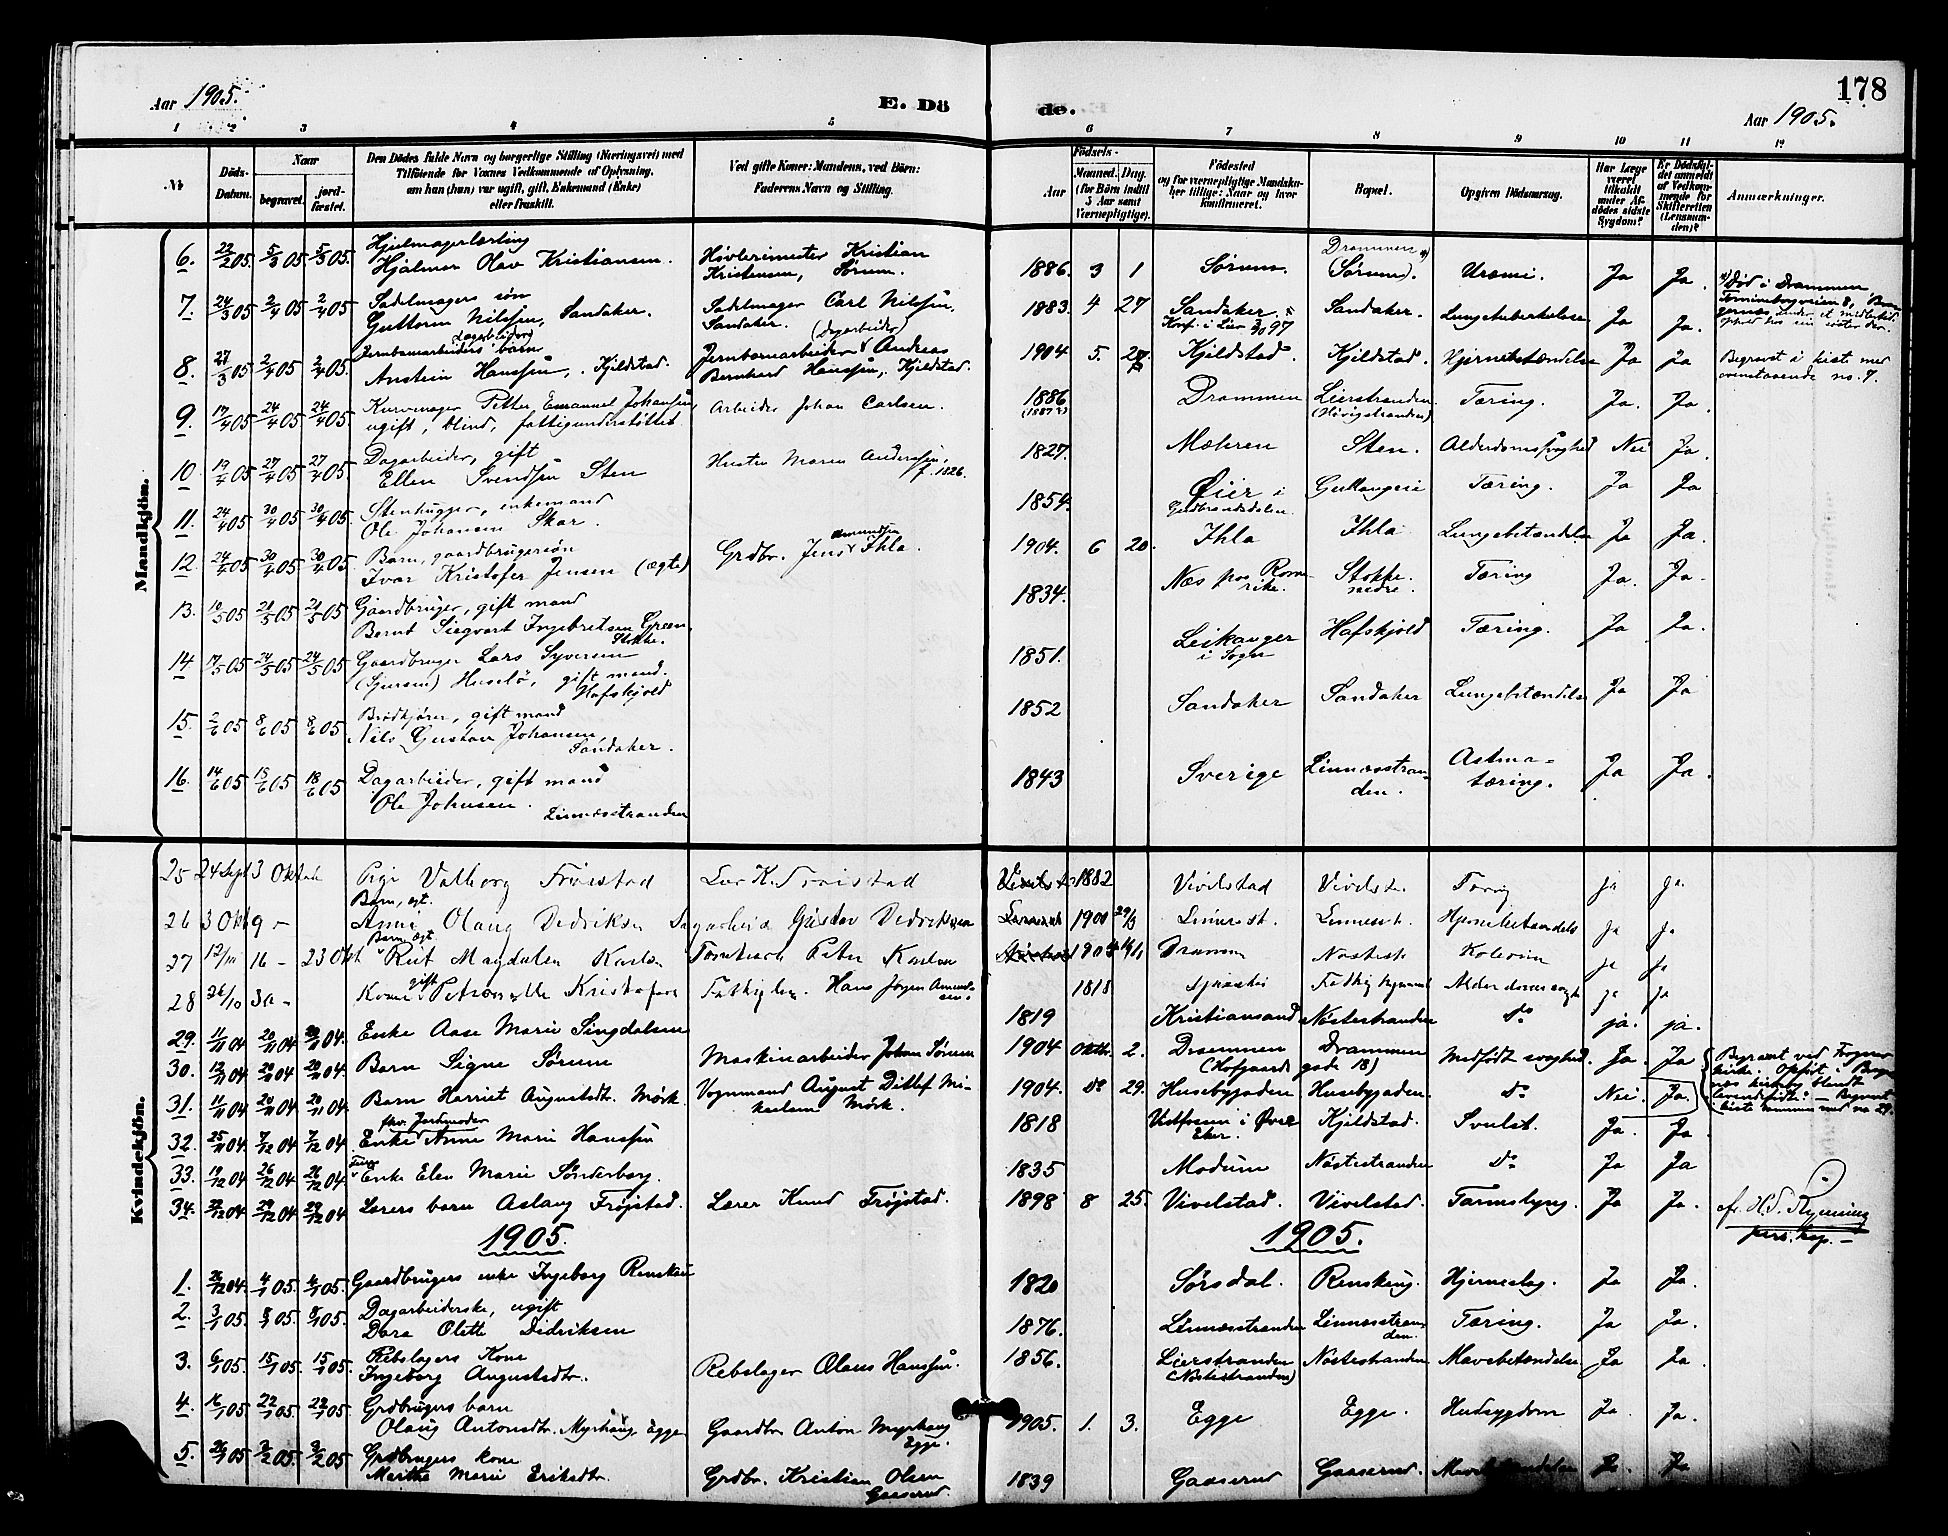 178
Aar 1905.
E. Dö de.
Aar 1905.
1 2 3 4 5 6 7 8 9 10 11 12
No
Döds-Datum.
Naar
begravet.
jordfæstet.
Den Dödes fulde Navn og borgerlige Stilling (Næringsvei) med
Tilföiende for Voxnes Vedkommende af Oplysning,
om han (hun) var ugift, gift, Enkemand (Enke)
eller fraskilt.
Ved gifte Koner: Mandens, ved Börn:
Faderens Navn og Stilling.
Födsels-
Aar
Maaned. (for Börn indtil 5 Aar samt Værnepligtige).
Dag.
Födested
og for værnepligtige Mandskaber tillige: Naar og hvor konfirmeret.
Bopæl.
Opgiven Dödsaarsag.
Har Læge været tilkaldt under Afdödes sidste Sygdom?
Er Dödsfaldet anmeldt af Vedkommende for Skifteretten (Lensmanden)?
Anmærkninger.
Mandkjön.
6. 22/2 05. 5/3 05 5/3 05. Hjulmagerlærling
Hjalmar Olav Kristiansen. Høvlerimester Kristian
Kristensen, Sørum. 1886. 3 1 Sørum. Drammen x) (Sørum). Uræmi. Ja Ja. x) Død i Drammen
7. 24/3 05 2/4 05 2/4 05. Sadelmagers søn
Guttorm Nilssen, Sandaker. Sadelmager Carl Nilssen,
Sandaker. 1883. 4 27 Sandaker. Konf. i Lier 97 Sandaker. Lungetuberkelose Ja Ja.
8. 27/3 05 2/4 05 2/4 05. Jernbanearbeiders (dagarbeiders) barn
Anstein Hanssen, Kjeldstad. Jernbanearbeider (dagarbeider) Andreas
Bernhard Hanssen, Kjeldstad. 1904 5. Kjeldstad. Kjeldstad. Hjernebetændelse Ja Ja Begravet i kiste med
ovenstaaende no. 7.
9. 17/4 05 24/4 05 24/4 05. Kurvemager Petter Emanuel Johansen,
ugift, blind, fattigunderstøttet Arbeider Johan Carlsen. 1886 (1887?) Drammen Lierstranden (Høvigstranden) Tæring. Ja. Ja.
10. 19/4 05 27/4 05 27/4 05. Dagarbeider, gift
Ellen Svendsen Sten Hustru Maren Andersen,
f. 1826. 1827. Mæhren Sten. Alderdomssvaghed Nei Ja.
11. 24/4 05 30/4 05 30/4 05. Stenhugger, enkemand
Ole Johansen Skar. 1854. Øier i
Gudbrandsdalen. Gullaugeie Tæring. Ja Ja
12 24/4 05 30/4 05 30/4 05. Barn, gaardbrugersøn
Ivar Kristofer Jensen (ægte) Grdbr. Jens Amundsen Ihla. 1904. 6 20. Ihla Ihla Lungebetændelse Ja Ja.
13. 10/5 05 21/5 05 21/5 05 Gaardbruger, gift mand
Bernt Siegvart Ingebretsen Green,
Stokke. 1834. Næs paa Romerike. Stokke. nedre. Tæring Ja. Ja.
14 17/5 05 24/5 05 24/5 05 Gaardbruger Lars Syversen
(Sjursen) Huselø, gift mand.
Hafskjold 1851. Leikanger
i Sogn Hafskjold Tæring. Ja Ja.
15. 2/6 05 8/6 05 8/6 05. Brødkjører, gift mand
Nils Gustav Johansen
Sandaker. 1852 Sandaker Sandaker Lungebetændelse Ja Ja
16. 14/6 05 18/6 05 18/6 05 Dagarbeider, gift mand
Ole Johnsen.
Linnesstranden 1843 Sverige Linnesstranden. Astmatæring. Ja Ja.
Kvindekjön.
25 24 Sept 3 Oktob Pige Valborg Frøistad Lær K. Frøistad 1882 Vivelstad Vivelst. Tæring ja ja.
26 3 Okt 9 - Barn, ægt.
Anne Olaug Dedriksen Dagarbeid Gustav Dedriksen 1900 29/3 Linnest. Linnest. Hjernebetændels ja ja
27 12/10 16 - 23 Okt Barn ægt.
Rut Magdalen Karlsen Peter Karlsen Drammen Nøstest. Kolerine ja ja
28 26/10 30 - Kone gift Petronelle Kristofers Fattiglem Hans Jørgen 1818 Alderdomssvagh ja ja
29. 11/11 04 20/11 04 20/11 04. Enke Aase Marie Singdalsen 1819 Kristiansand Nøstestranden Do ja. ja.
30. 12/11 04 20/11 04 20/11 04. Barn Signe Sørum Maskinarbeider Johan Sørum 1904 Oktbr. 2. Drammen
(Hofgaards Drammen gade 18) Medfødt svaghed. Ja. Ja
31. 11/11 04 20/11 04 20/11 04 Barn Harriet Augustdtr. Mörk Vognmand August Ditlef Mikaelsen Mörk. 1904. Do 29. Husebygaden Husebygaden. Do Nei. Ja.
32. 25/11 04 7/12 04 7/12 04 fhv. Jordmoder
Enke Anne Marie Hanssen 1818 Vestfossen i Øvre
Eker. Kjeldstad. Svulst. Ja. Ja.
33. 19/12 04 26/12 04 26/12 04 Enke Elen Marie Sønderborg. 1835 Modum Nøstestranden Do Ja Ja
34. 22/12 04 29/12 04 29/12 04 Lærers barn Aslaug Frøjstad. Lærer Knud Frøjstad. 1898 8 25. Vivelstad. Vivelstad. Tarmslyng. Ja Ja.
Begravet ved Frogner
kirke.
pers. kap.
1905. 1905.
1. 26/12 04. 4/1 05. 4/1 05. Gaardbrugers enke Ingeborg Renskau 1820 Sørsdal. Renskaug. Hjerneslag. Ja Ja.
2. 3/1 05. 8/1 05. 8/1 05. Dagarbeiderske, ugift
Dora Olette Didriksen 1876. Linnesstranden Linnesstranden. Tæring. Ja Ja.
3. 6/1 05. 15/1 05. 15/1 05. Rebslagers Kone
Ingeborg Augustadtr. Rebslager Olaus Hanssen. 1856. Lierstranden
(Nøstestranden) Nøstestranden Mavebetændelse Ja Ja.
4. 16/1 05. 22/1 05. 22/1 05. Grdbrugers barn
Olaug Antonsdtr. Myrhaug, Egge Gaardbr Anton Myrhaug
Egge. 1905. 1. 3. Egge Egge. Hudsygdom Ja. Ja.
5. 05 2/2 05. 2/2 05 Grdbrugers kone
Marthe Marie Eriksdtr. Grdbr. Kristian Olsen
Gaaserud. 1839 Gaaserud Gaaserud. Ja. Ja.